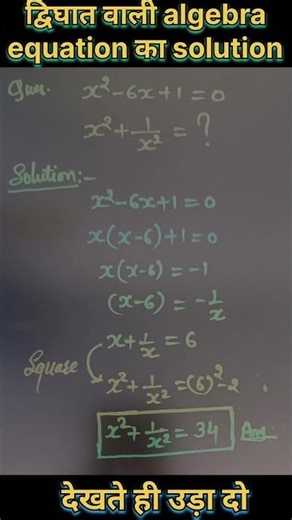 द्विघात वाली algebra
equation का solution
Ques. x²-6x+1=0
x²+1/x²=?
Solution:-
x²-6x+1=0
x(x-6)+1=0
x(x-6)=-1
(x-6)=-1/x
x+1/x=6
Square
x²+1/x²=(6)²-2
x²+1/x²=34 Ans.
देखते ही उड़ा दो